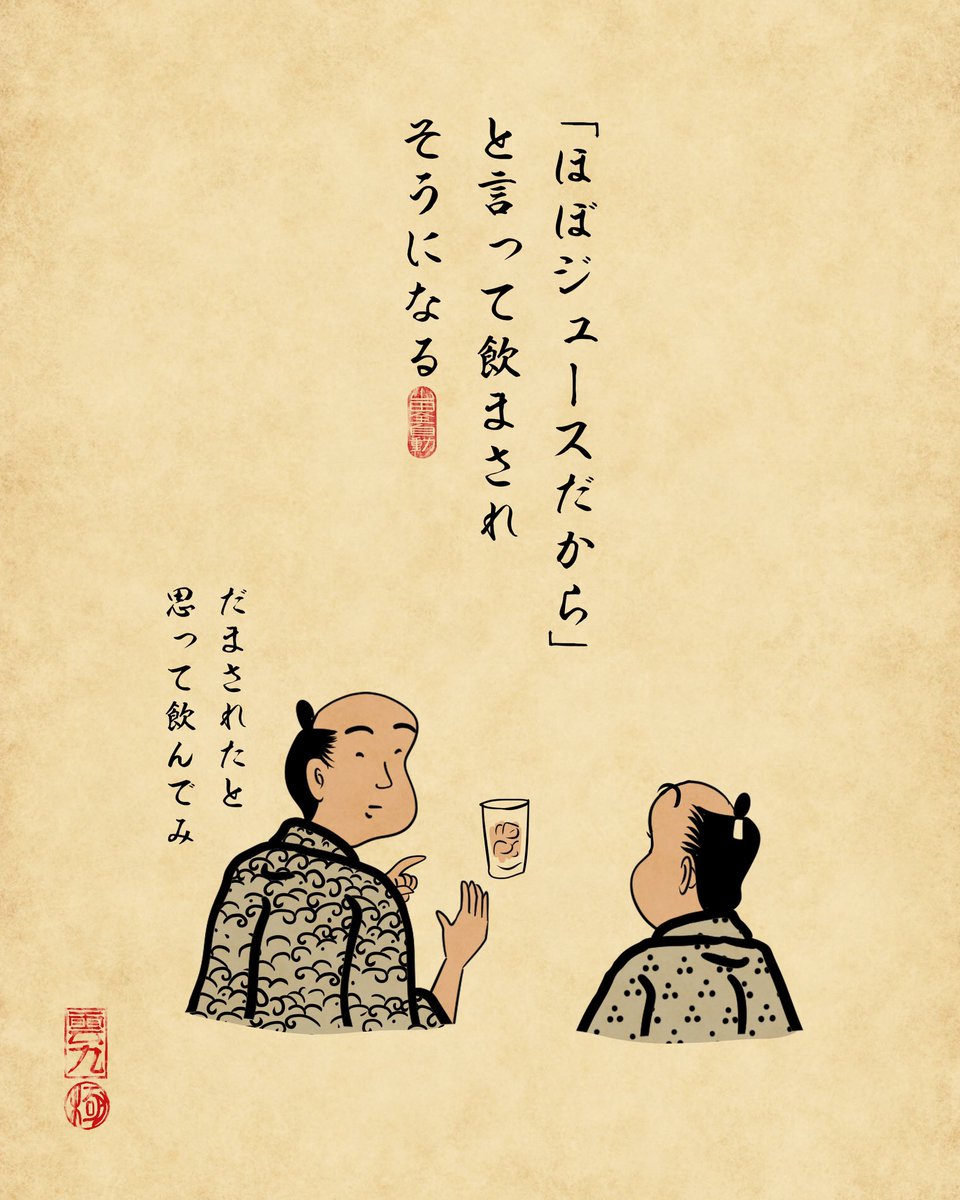 「ほぼジュースだから」
と言って飲まされ
そうになる
だまされたと
思って飲んでみ